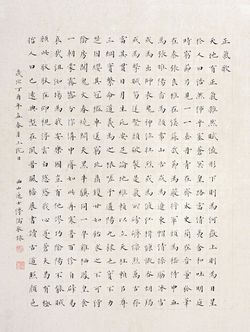 正氣歌
天地有正氣雜然賦流形下則為河嶽上則為日星
於人曰浩然沛乎塞蒼冥皇路當清夷含和吐明庭
時窮節乃見一一垂丹青在齊太史簡在晉董狐筆
在秦張良椎在漢蘇武節為嚴將軍頭為嵇侍中血
為張睢陽齒為顏常山舌或為遼東帽清操厲冰雪
或為出師表鬼神泣壯烈或為渡江楫慷慨吞胡羯
或為擊賊笏逆豎頭破裂是氣所磅礴凜烈萬古存
當其貫日月生死安足論地維賴以立天柱賴以尊
三綱實繫命道義為之根嗟予遘陽九隸也實不力
楚囚纓其冠傳車送窮北鼎鑊甘如飴求之不可得
陰房闃鬼火春院閟天黑牛驥同一皁雞棲鳳凰食
一朝蒙霧露分作溝中瘠如此再寒暑百沴自辟易
哀哉沮洳場為我安樂國豈有他繆巧陰陽不能賊
顧此耿耿在仰視浮雲白悠悠我心悲蒼天曷有極
哲人日已遠典型在夙昔風簷展書讀古道照顏色
歲次丁酉年孟春月上浣日
西山逸士溥儒敬錄